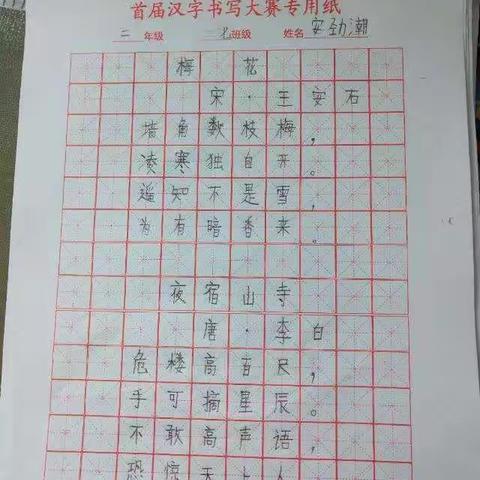 首届汉字书写大赛专用纸
二年级 二七班级 姓名安劲潮
梅花
宋·王安石
墙角数枝梅，
凌寒独自开。
遥知不是雪，
为有暗香来。
夜宿山寺
唐·李白
危楼高百尺，
手可摘星辰。
不敢高声语，
恐惊天上人